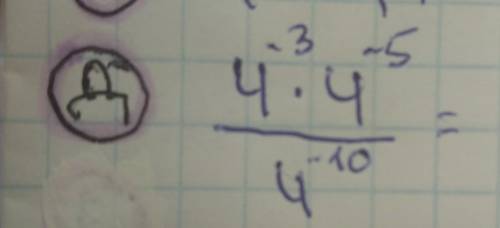 Д 4⁻³ · 4⁻⁵ / 4⁻¹⁰ =